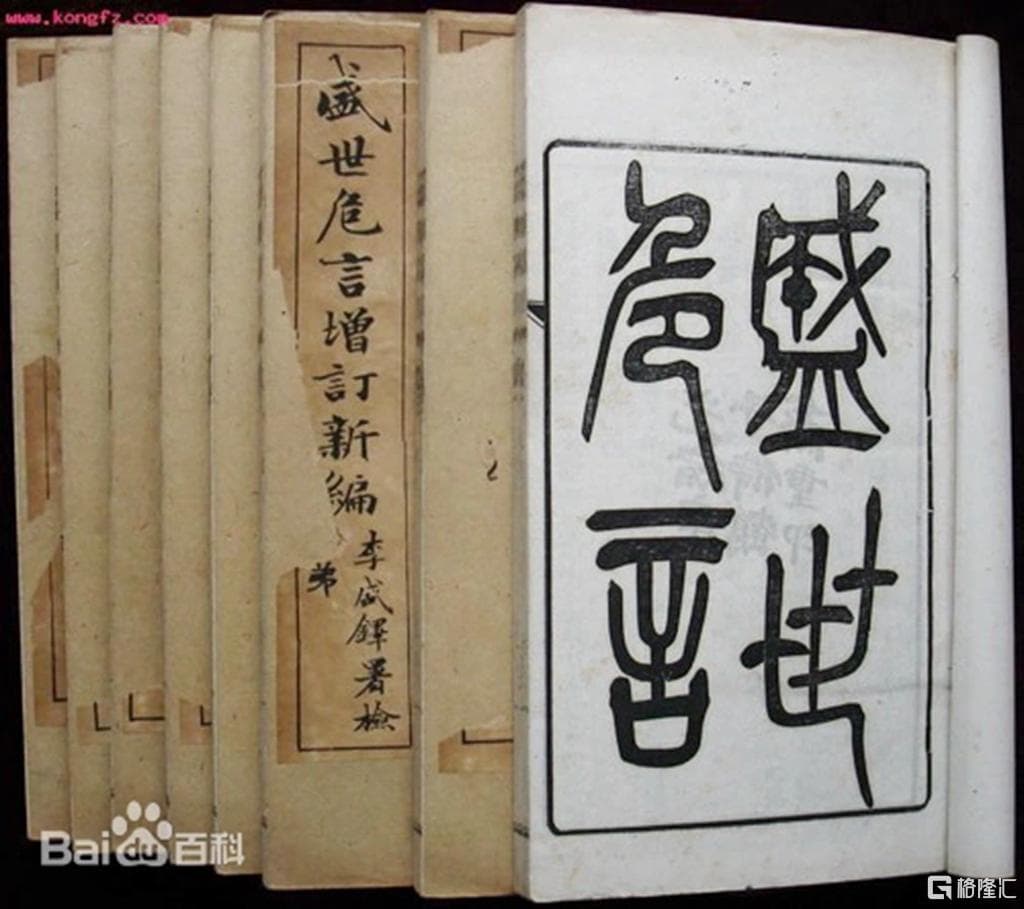 www.kongfz.com
盛世危言增訂新編
李盛鐸署檢
弟
盛世
危言
Baidu百科
格隆汇